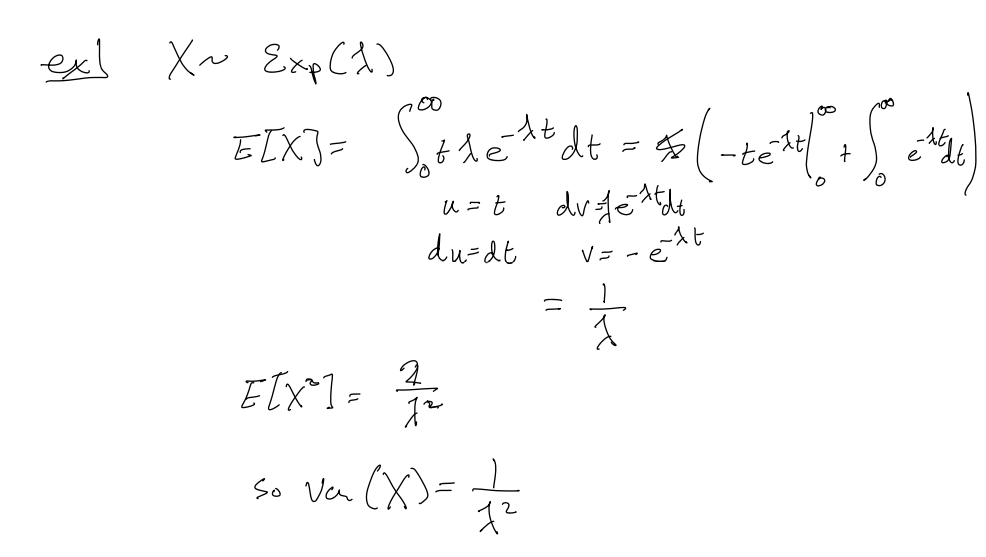 ex1 X ~ Exp(λ)
E[X] = ∫₀^∞ t λe^{-λt} dt = (-te^{-λt}|₀^∞ + ∫₀^∞ e^{-λt} dt)
u = t dv = λe^{-λt}dt
du = dt v = -e^{-λt}
= 1/λ
E[X²] = 2/λ²
so Var(X) = 1/λ²